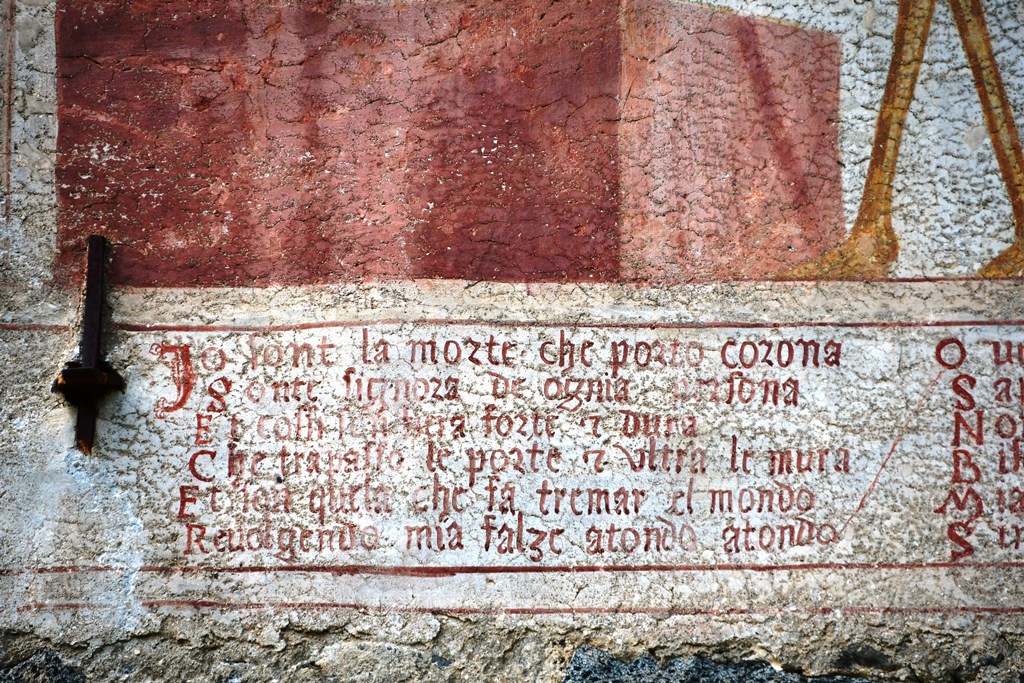 Io sont la morte che porto corona
Sonte signora de ognia persona
Et cossi son fiera forte et dura
Che trapasso le porte et ultra le mura
Et son quela che fa tremar el mondo
Revolgendo mia falze atondo atondo
O
S
N
B
M
S